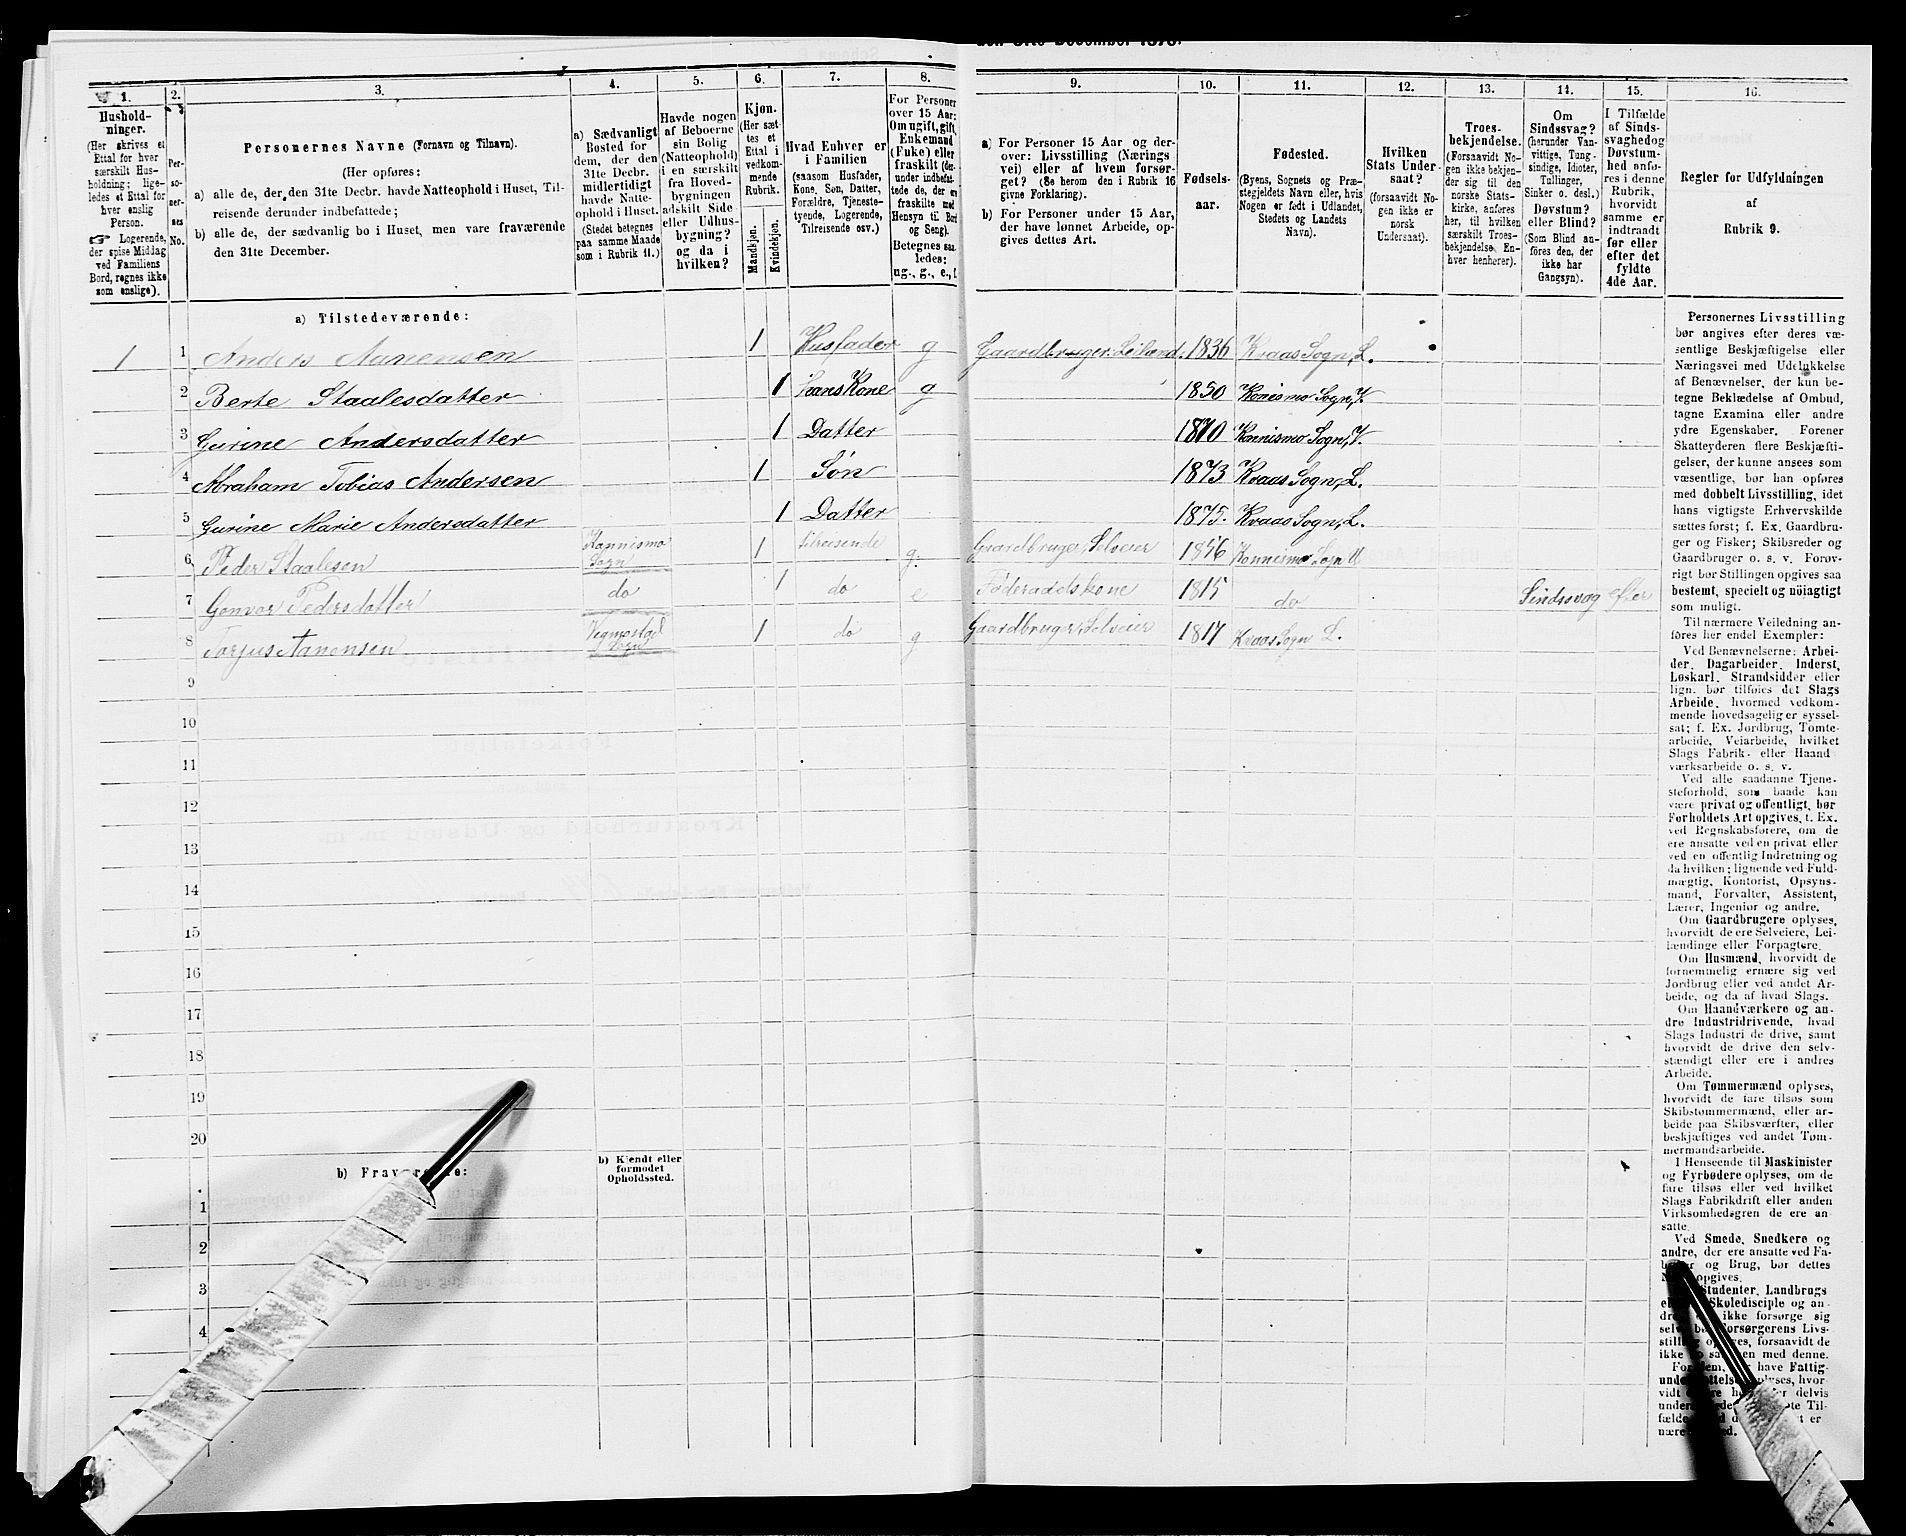 den 31te December 1875.
1.
Hushold-
ninger.
(Her skrives et
Ettal for hver
særskilt Hus-
holdning; lige-
ledes et Ettal for
hver enslig
Person.
☞ Logerende,
der spise Middag
ved Familiens
Bord, regnes ikke
som enslige).
2.
Per-
so-
ner-
nes
No.
3.
Personernes Navne (Fornavn og Tilnavn).
(Her opføres:
a) alle de, der den 31te Decbr. havde Natteophold i Huset, Til-
reisende derunder indbefattede;
b) alle de, der sædvanlig bo i Huset, men vare fraværende
den 31te December.
4.
a) Sædvanligt
Bosted for
dem, der den
31te Decbr.
midlertidigt
havde Natte-
ophold i Huset.
(Stedet betegnes
paa samme Maade
som i Rubrik 11.)
5.
Havde nogen
af Beboerne
sin Bolig
(Natteophold)
i en særskilt
fra Hoved-
bygningen
adskilt Side
eller Udhus-
bygning?
og da i
hvilken?
6.
Kjøn.
(Her sæt-
tes et
Ettal i
vedkom-
mende
Rubrik.
Mandkjøn.
Kvindekjøn.
7.
Hvad Enhver er
i Familien
(saasom Husfader,
Kone, Søn, Datter,
Forældre, Tjeneste-
tyende, Logerende,
Tilreisende osv.)
8.
For Personer
over 15 Aar:
Om ugift, gift,
Enkemand
(Enke) eller
fraskilt (der-
under indbefat-
tede de, der ere
fraskilte med
Hensyn til Bord
og Seng).
Betegnes saa-
ledes:
ug., g., e., f.
9.
a) For Personer 15 Aar og der-
over: Livsstilling (Nærings-
vei) eller af hvem forsør-
get? (Se herom den i Rubrik 16
givne Forklaring).
b) For Personer under 15 Aar,
der have lønnet Arbeide, op-
gives dettes Art.
10.
Fødsels-
aar.
11.
Fødested.
(Byens, Sognets og Præ-
stegjeldets Navn eller, hvis
Nogen er født i Udlandet,
Stedets og Landets
Navn).
12.
Hvilken
Stats Under-
saat?
(forsaavidt No-
gen ikke er
norsk
Undersaat).
13.
Troes-
bekjendelse.
(Forsaavidt No-
gen ikke bekjen-
der sig til den
norske Stats-
kirke, anføres
her, til hvilken
særskilt Troes-
bekjendelse En-
hver henhører).
14.
Om
Sindssvag?
(herunder Van-
vittige, Tung-
sindige, Idioter,
Tullinger,
Sinker o. desl.)
Døvstum?
eller Blind?
(Som Blind an-
føres den, der
ikke har
Gangsyn).
15.
I Tilfælde
af Sinds-
svaghed og
Døvstum-
hed anfø-
res i denne
Rubrik,
hvorvidt
samme er
indtraadt
før eller
efter det
fyldte
4de Aar.
16.
Regler for Udfyldningen
af
Rubrik 9.
a) Tilstedeværende:
1 1 Anders Aanensen 1 Husfader g Gaardbruger. Leilænd. 1836 Kvaas Sogn, L.
2 Berte Staalesdatter 1 hans Kone g 1850 Konismo Sogn, V.
3 Gurine Andersdatter 1 Datter 1870 Konnismo Sogn, V.
4 Abraham Tobias Andersen 1 Søn 1873 Kvaas Sogn, L.
5 Gurine Marie Andersdatter 1 Datter 1875. Kvaas Sogn, L.
6 Peder Staalesen Konnismo Sogn 1 tilreisende g. Gaardbruger, Selveier 1846 Konnismo Sogn
7 Gonvor Pedersdatter do 1 do e Føderaadskone 1815 do Sindssvag efter
8 Torjus Aanensen Vegmostad Sogn 1 do g Gaardbruger, Selveier 1817 Kvaas Sogn L.
9
10
11
12
13
14
15
16
17
18
19
20
b) Fraværende:
b) Kjendt eller
formodet
Opholdssted.
1
2
3
4
Personernes Livsstilling
bør angives efter deres væ-
sentlige Beskjæftigelse eller
Næringsvei med Udelukkelse
af Benævnelser, der kun be-
tegne Beklædelse af Ombud,
tagne Examina eller andre
ydre Egenskaber. Forener
Skatteyderen flere Beskjæfti-
gelser, der kunne ansees som
væsentlige, bør han opføres
med dobbelt Livsstilling, idet
hans vigtigste Erhvervskilde
sættes først; f. Ex. Gaardbru-
ger og Fisker; Skibsreder og
Gaardbruger o. s. v. Forøv-
rigt bør Stillingen opgives saa
bestemt, specielt og nöiagtigt
som muligt.
Til nærmere Veiledning an-
føres her endel Exempler:
Ved Benævnelserne: Arbei-
der, Dagarbeider, Inderst,
Løskarl, Strandsidder eller
lign. bør tilføies det Slags
Arbeide, hvormed vedkom-
mende hovedsagelig er syssel-
sat; f. Ex. Jordbrug, Tomte-
arbeide, Veiarbeide, hvilket
Slags Fabrik- eller Haand-
værksarbeide o. s. v.
Ved alle saadanne Tjene-
steforhold, som baade kan
være privat og offentligt, bør
Forholdets Art opgives, f. Ex.
ved Regnskabsførere, om de
ere ansatte ved en privat eller
ved en offentlig Indretning og
da hvilken; lignende ved Fuld-
mægtig, Kontorist, Opsyns-
mand, Forvalter, Assistent,
Lærer, Ingeniør og andre.
Om Gaardbrugere oplyses,
hvorvidt de ere Selveiere, Lei-
lændinge eller Forpagtere.
Om Husmænd, hvorvidt de
fornemmelig ernære sig ved
Jordbrug eller ved andet Ar-
beide, og da af hvad Slags.
Om Haandværkere og an-
dre Industridrivende, hvad
Slags Industri de drive, samt
hvorvidt de drive den selv-
stændigt eller ere i andres
Arbeide.
Om Tømmermænd oplyses,
hvorvidt de fare tilsøs som
Skibstømmermænd, eller ar-
beide paa Skibsværfter, eller
beskjæftiges ved andet Tøm-
mermandsarbeide.
I Henseende til Maskinister
og Fyrbødere oplyses, om de
fare tilsøs eller ved hvilket
Slags Fabrikdrift eller anden
Virksomhedsgren de ere an-
satte.
Ved Smede, Snedkere og
andre, der ere ansatte ved Fa-
og Brug, bør dettes
opgives.
Studenter, Landbrugs
Skoledisciple og an-
ikke forsørge sig
Forsørgerens Livs-
forsaavidt de
ikke med denne.
have Fattig-
hvor-
vidt delvis
Til-
fælde er